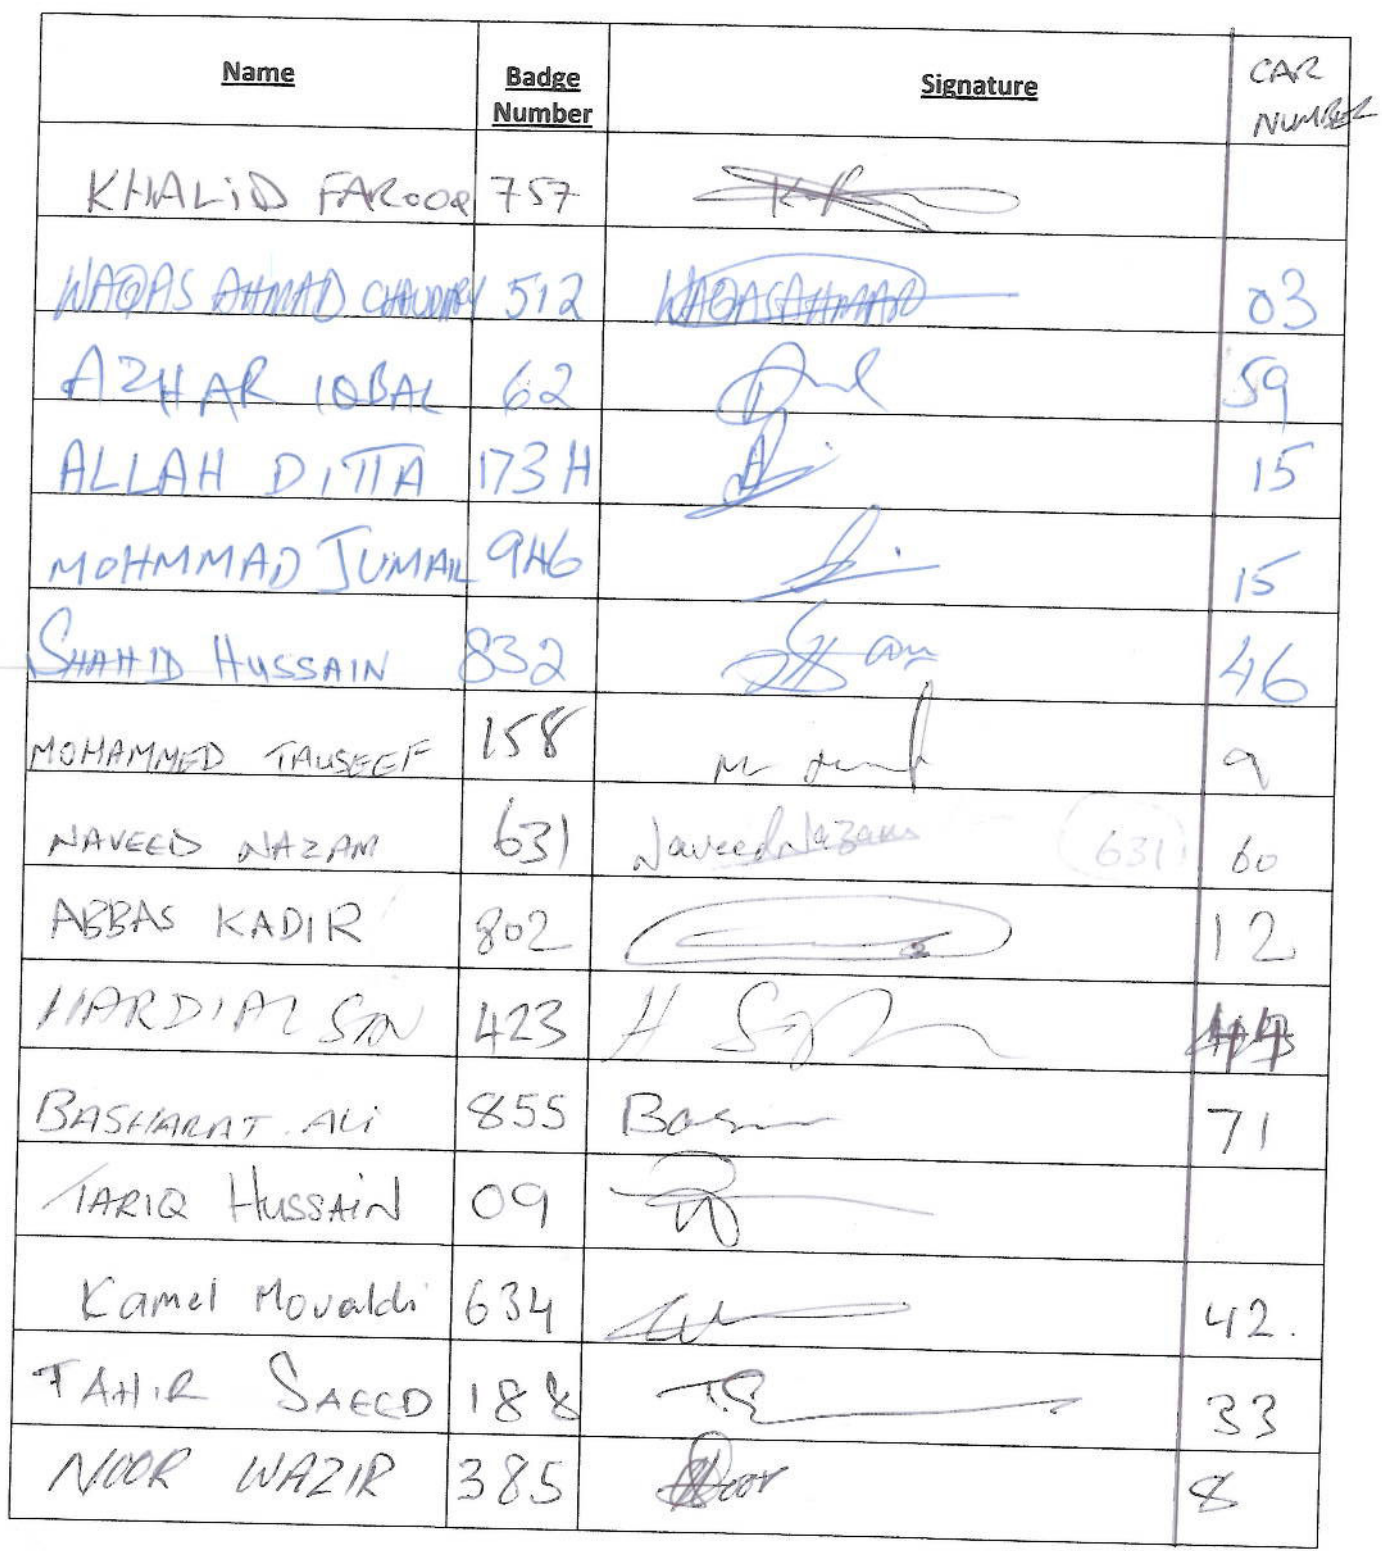 Name Badge Number Signature CAR NUMBER
KHALID FAROOQ 757
WAQAS AHMAD CHAUDHRY 512 WAQAS AHMAD 03
AZHAR IQBAL 62 59
ALLAH DITTA 173H 15
MOHMMAD JUMAIL 946 15
SHAHID HUSSAIN 832 46
MOHAMMED TAUSEEF 158 9
NAVEED NAZAM 631 Naveed Nazam 631 60
ABBAS KADIR 802 12
HARDIAL 423 H
BASHARAT ALI 855 71
TARIQ HUSSAIN 09
Kamel Movaldi 634 42.
TAHIR SAEED 188 T.S 33
NOOR WAZIR 385 Noor 8